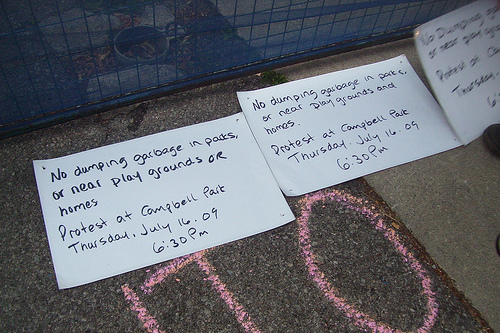 No dumping garbage in parks,
or near play grounds or
homes
Protest at Campbell Park
Thursday, July 16.09
6:30 Pm
No dumping garbage in parks,
or near play grounds and
homes.
Protest at Campbell Park
Thursday, July 16.09
6:30 Pm
No Dumping
or near play
Protest at
Thursday
6:
TO